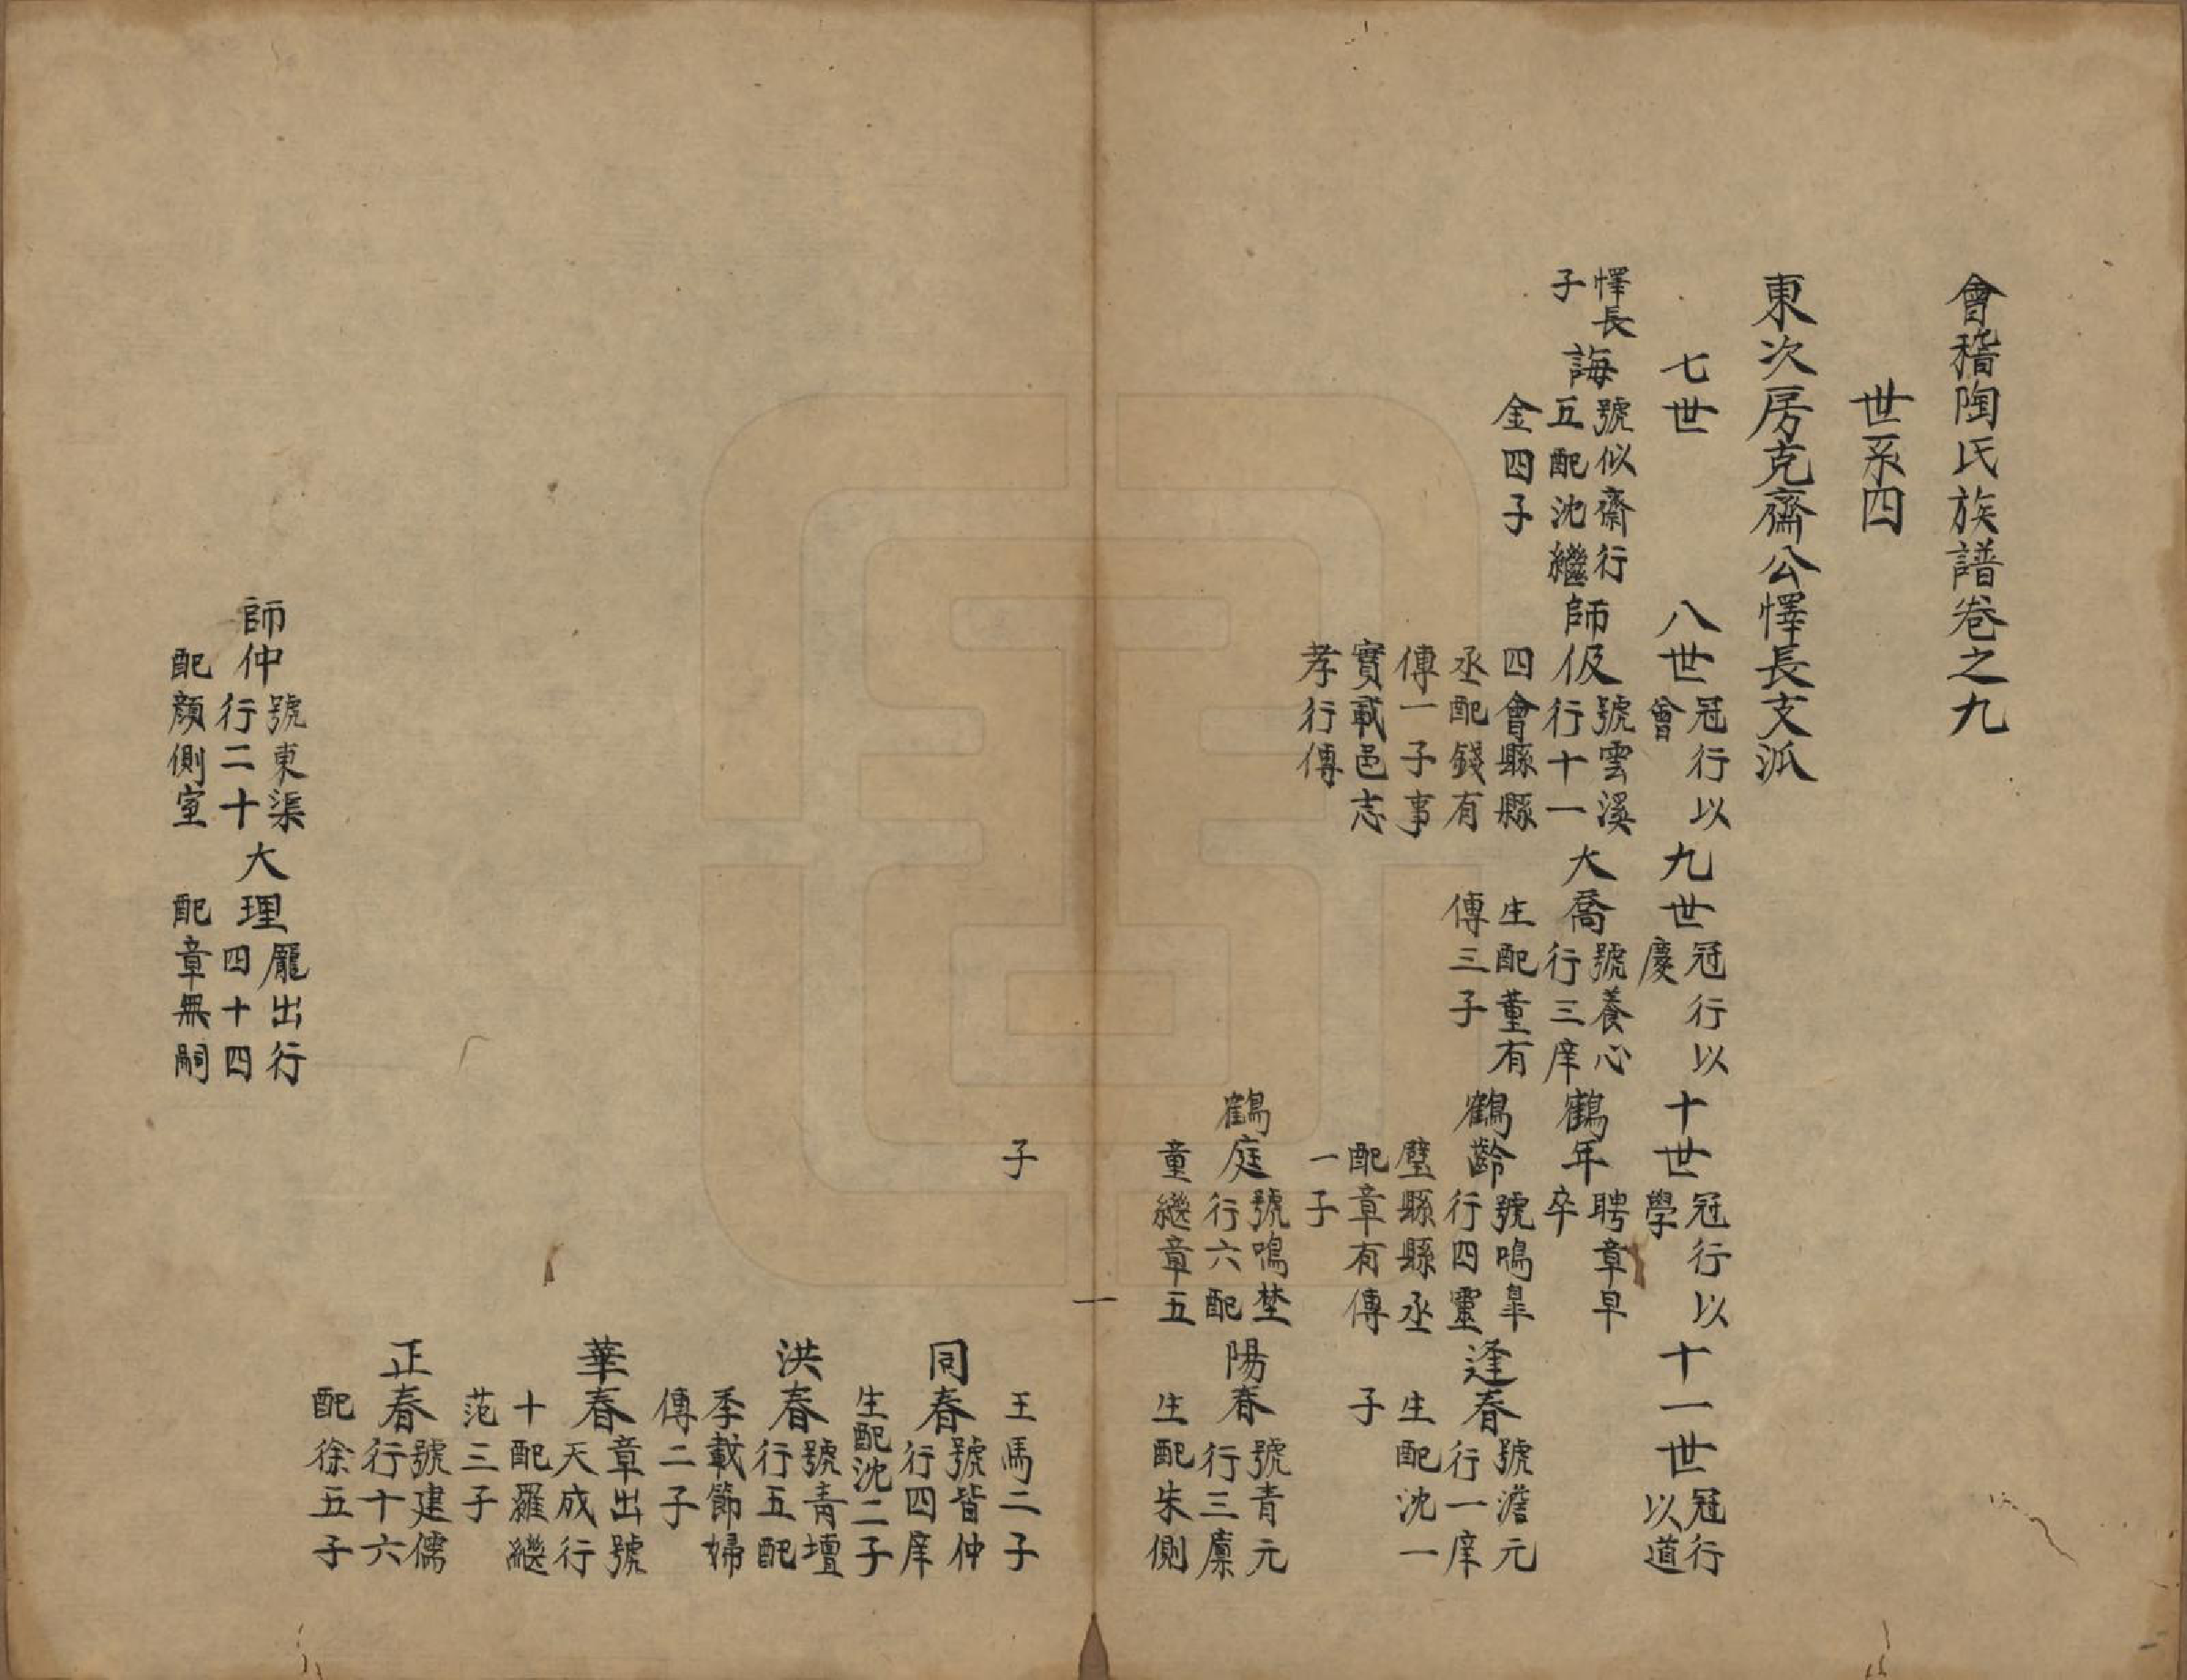 會稽陶氏族譜卷之九
世系四
東次房克齋公懌長支派
七世
八世冠行以會
九世冠行以慶
十世冠行以學
十一世冠行以道
懌長子
誨號似齋行五配沈繼金四子
師伋號雲溪行十一四會縣縣丞配錢有傳一子事實載邑志孝行傳
大喬號養心行三庠生配董有傳三子
鶴年聘章早卒
鶴齡號鳴臯行四靈璧縣縣丞配章有傳一子
逢春號澹元行一庠生配沈一子
鶴庭號鳴埜行六配童繼章五子
陽春號青元行三廩生配朱側王馬二子
同春號皆仲行四庠生配沈二子
洪春號青壇行五配季載節婦傳二子
華春章出號天成行十配羅繼范三子
正春號建儒行十六配徐五子
師仲號東渠行二十配顏側室
大理龎出行四十四配章無嗣
一